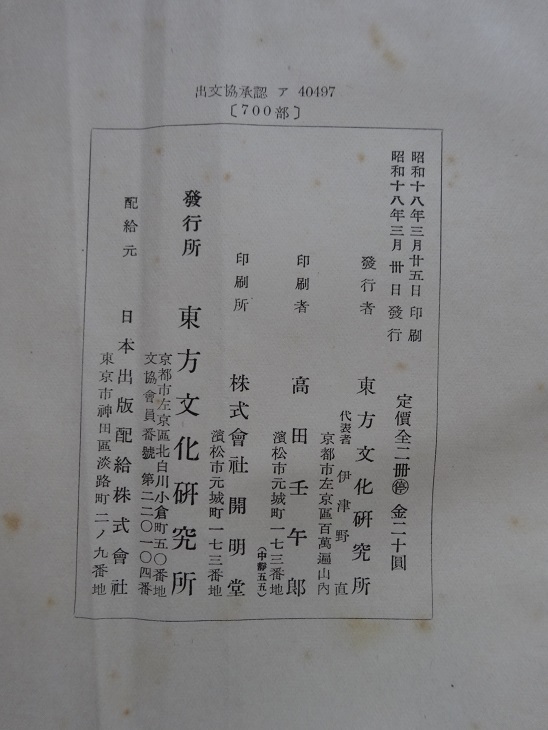 出文協承認 ア 40497
〔700部〕
昭和十八年三月廿五日 印刷
昭和十八年三月 卅 日 發行
定價全二冊㊡ 金二十圓
發行者 東方文化研究所
代表者 伊津野 直
京都市左京區百萬遍山內
印刷者 高田壬午郎
濱松市元城町一七三番地
(中靜五五)
印刷所 株式會社開明堂
濱松市元城町一七三番地
發行所 東方文化研究所
京都市左京區北白川小倉町五〇番地
文協會員番號 第二二〇一〇四番
配給元 日本出版配給株式會社
東京市神田區淡路町二ノ九番地